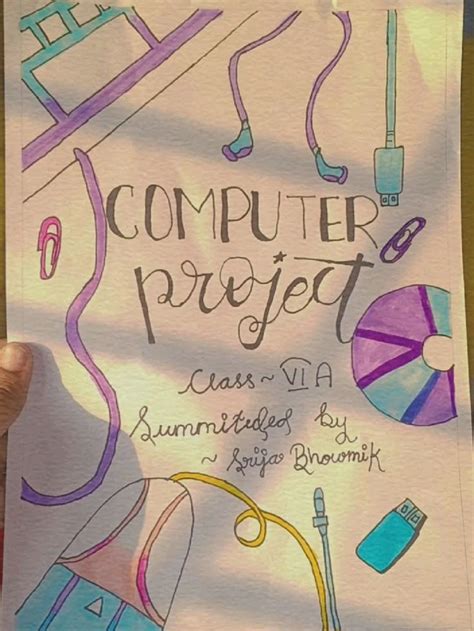 COMPUTER
project
Class ~ VI A
Summiteded by
~ Srija Bhowmik